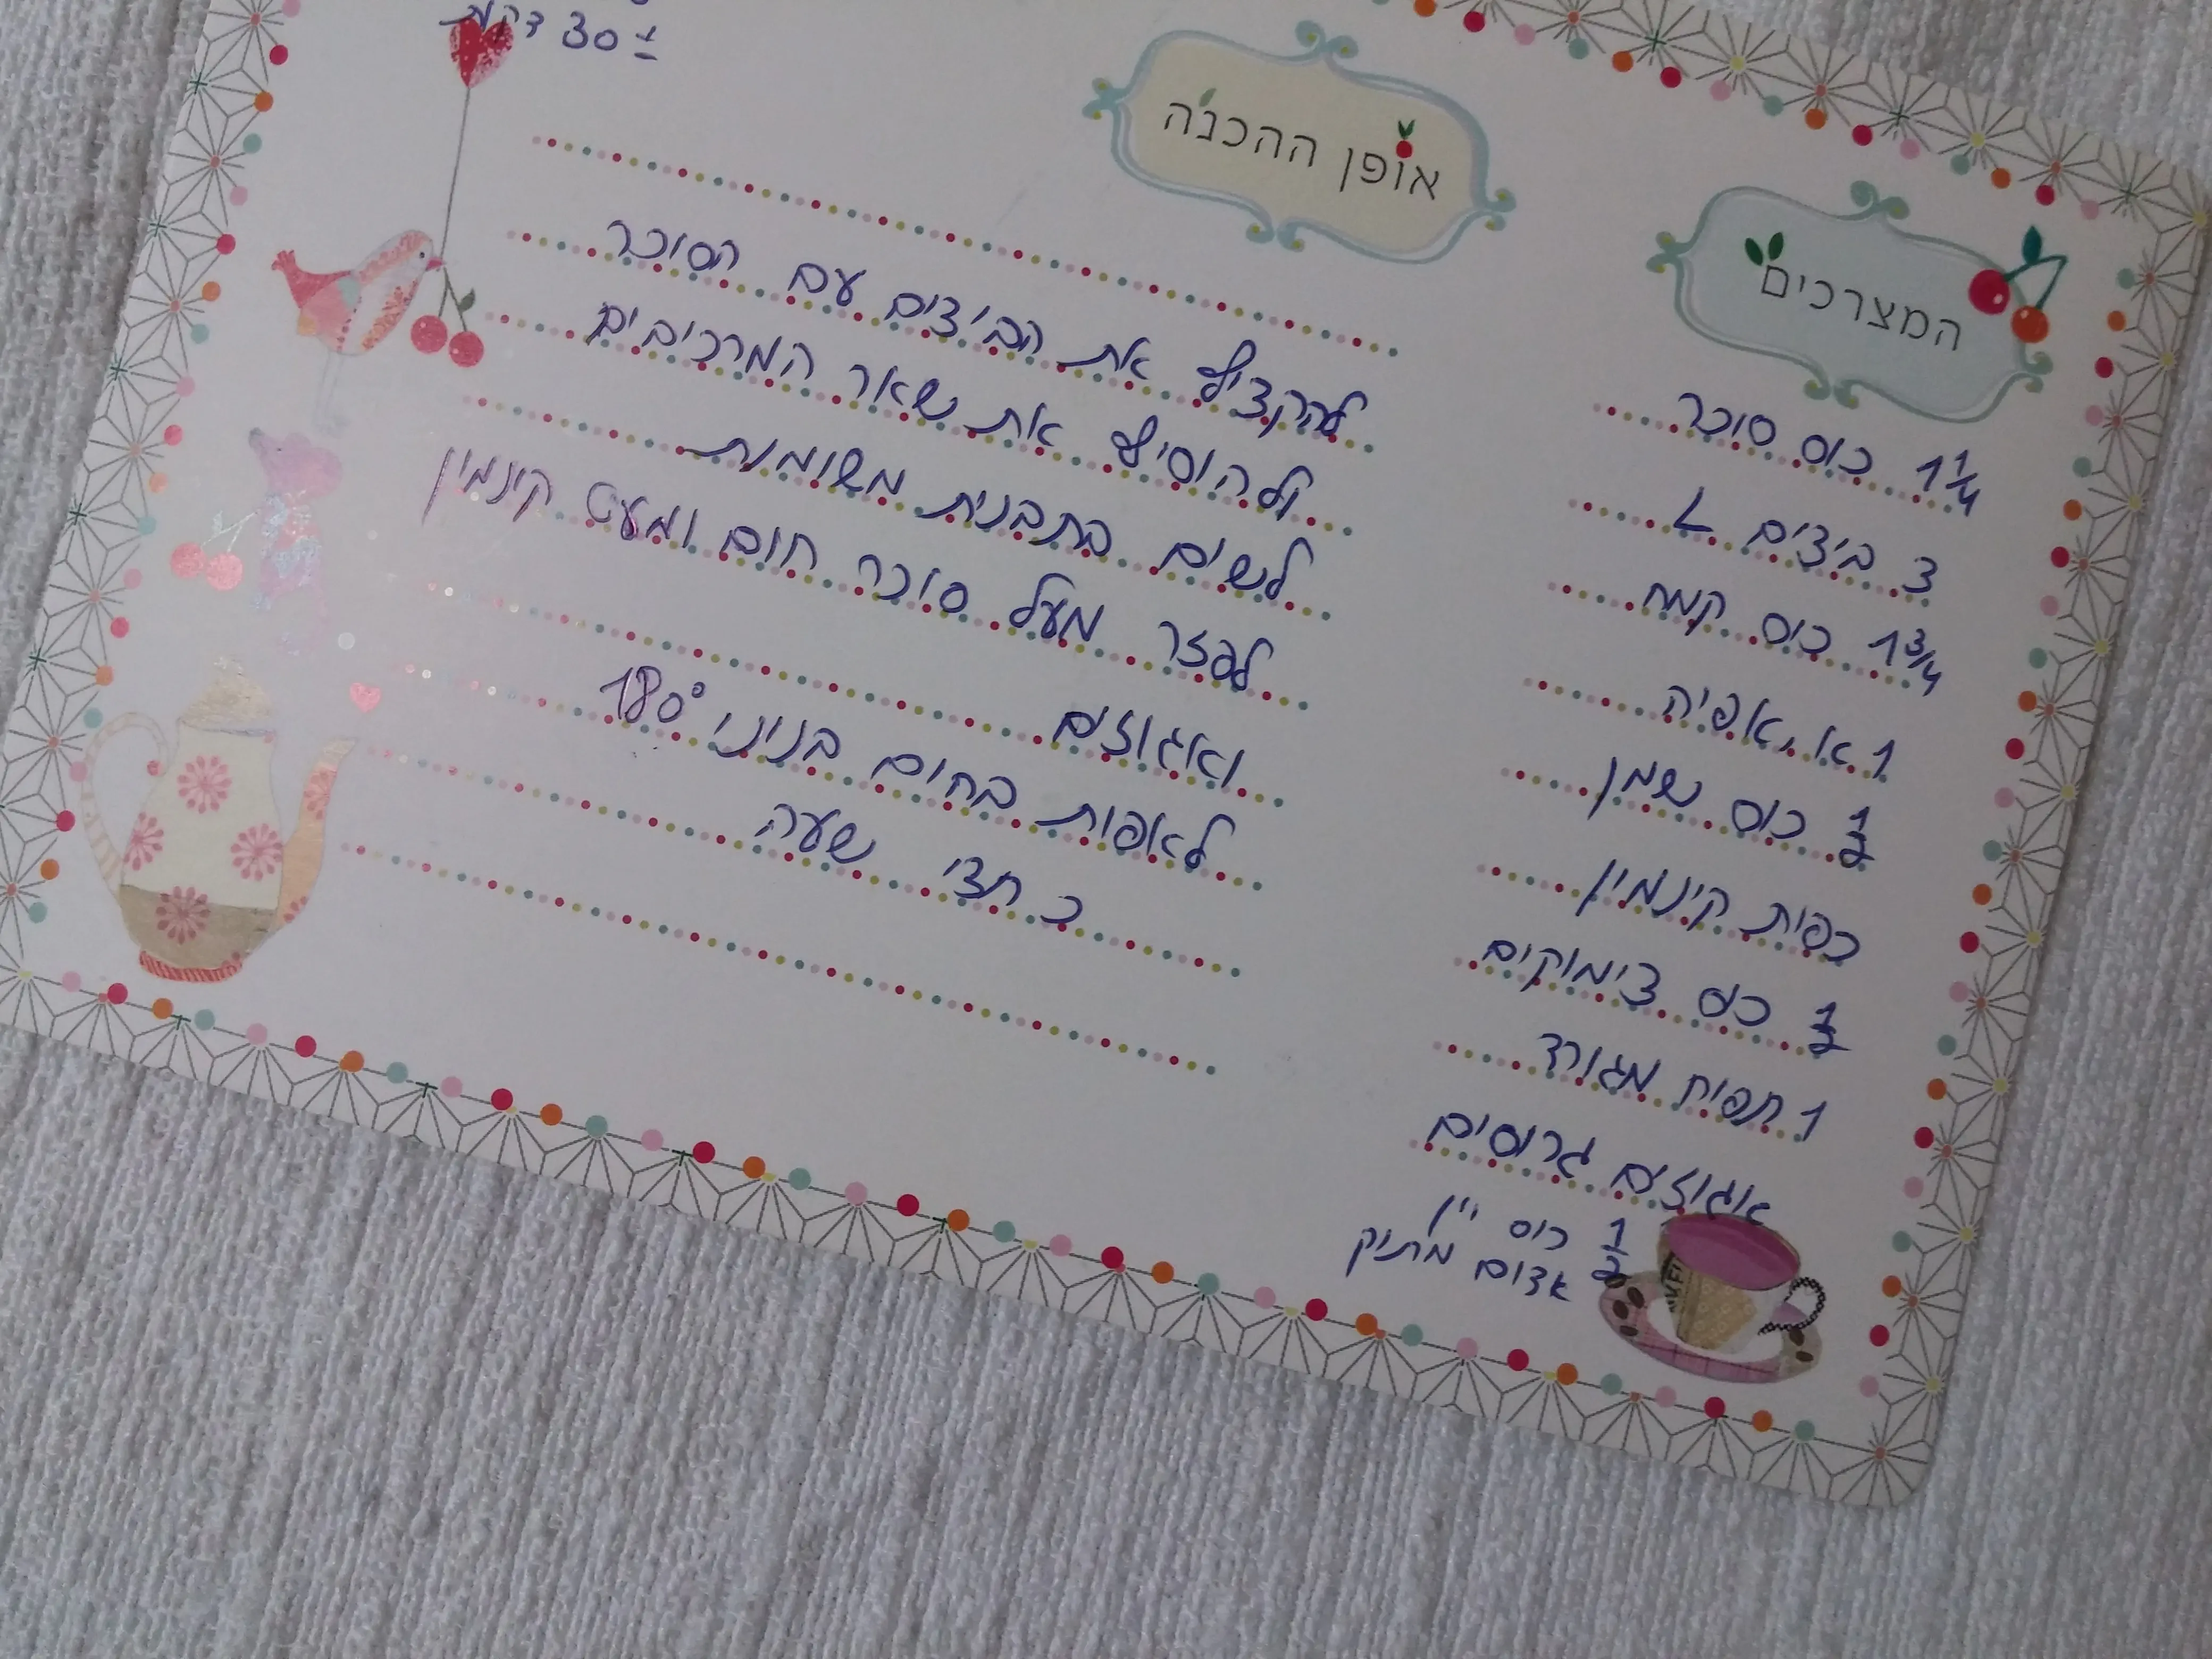 ± 30 דקות
אופן ההכנה
להקציף את הביצים עם הסוכר
ולהוסיף את שאר המרכיבים
לשים בתבנית משומנת
לפזר מעל סוכר חום ומעט קינמון
ואגוזים
לאפות בחום בנוני 180°
כ חצי שעה
המצרכים
1 1/4 כוס סוכר
3 ביצים L
1 3/4 כוס קמח
1 א. אפיה
1/2 כוס שמן
כפית קינמון
1/2 כוס צימוקים
1 תפוח מגורד
אגוזים גרוסים
1/2 כוס יין
אדום מתוק